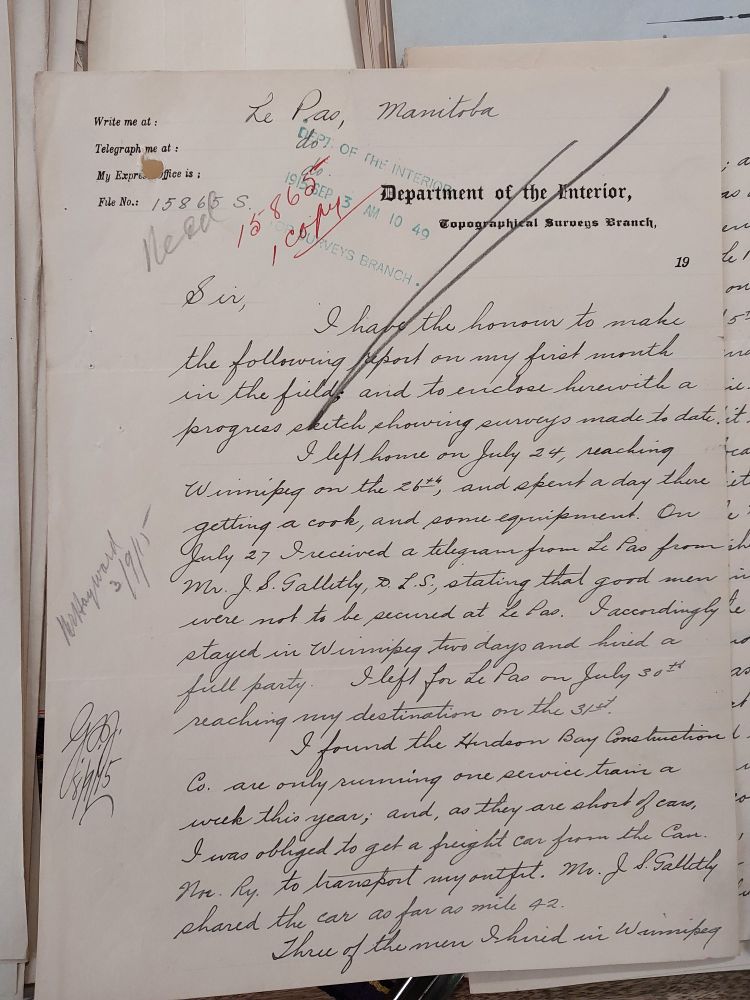 Write me at : Le Pas, Manitoba
Telegraph me at : do
My Express Office is : do.
File No.: 15865 S.
Read
15865
1 copy
DEPT. OF THE INTERIOR
1915 SEP 3 AM 10 49
SURVEYS BRANCH.
Department of the Interior,
Topographical Surveys Branch,
19
Sir,
I have the honour to make
the following report on my first month
in the field; and to enclose herewith a
progress sketch showing surveys made to date.
I left home on July 24, reaching
Winnipeg on the 26th, and spent a day there
getting a cook, and some equipment. On
July 27 I received a telegram from Le Pas from
Mr. J. S. Galletly, D. L. S., stating that good men
were not to be secured at Le Pas. I accordingly
stayed in Winnipeg two days and hired a
full party. I left for Le Pas on July 30th
reaching my destination on the 31st.
I found the Hudson Bay Construction
Co. are only running one service train a
week this year; and, as they are short of cars,
I was obliged to get a freight car from the Can.
Nor. Ry. to transport my outfit. Mr. J. S. Galletly
shared the car as far as mile 42.
Three of the men I hired in Winnipeg
Hayward
3/9/15
8/9/15